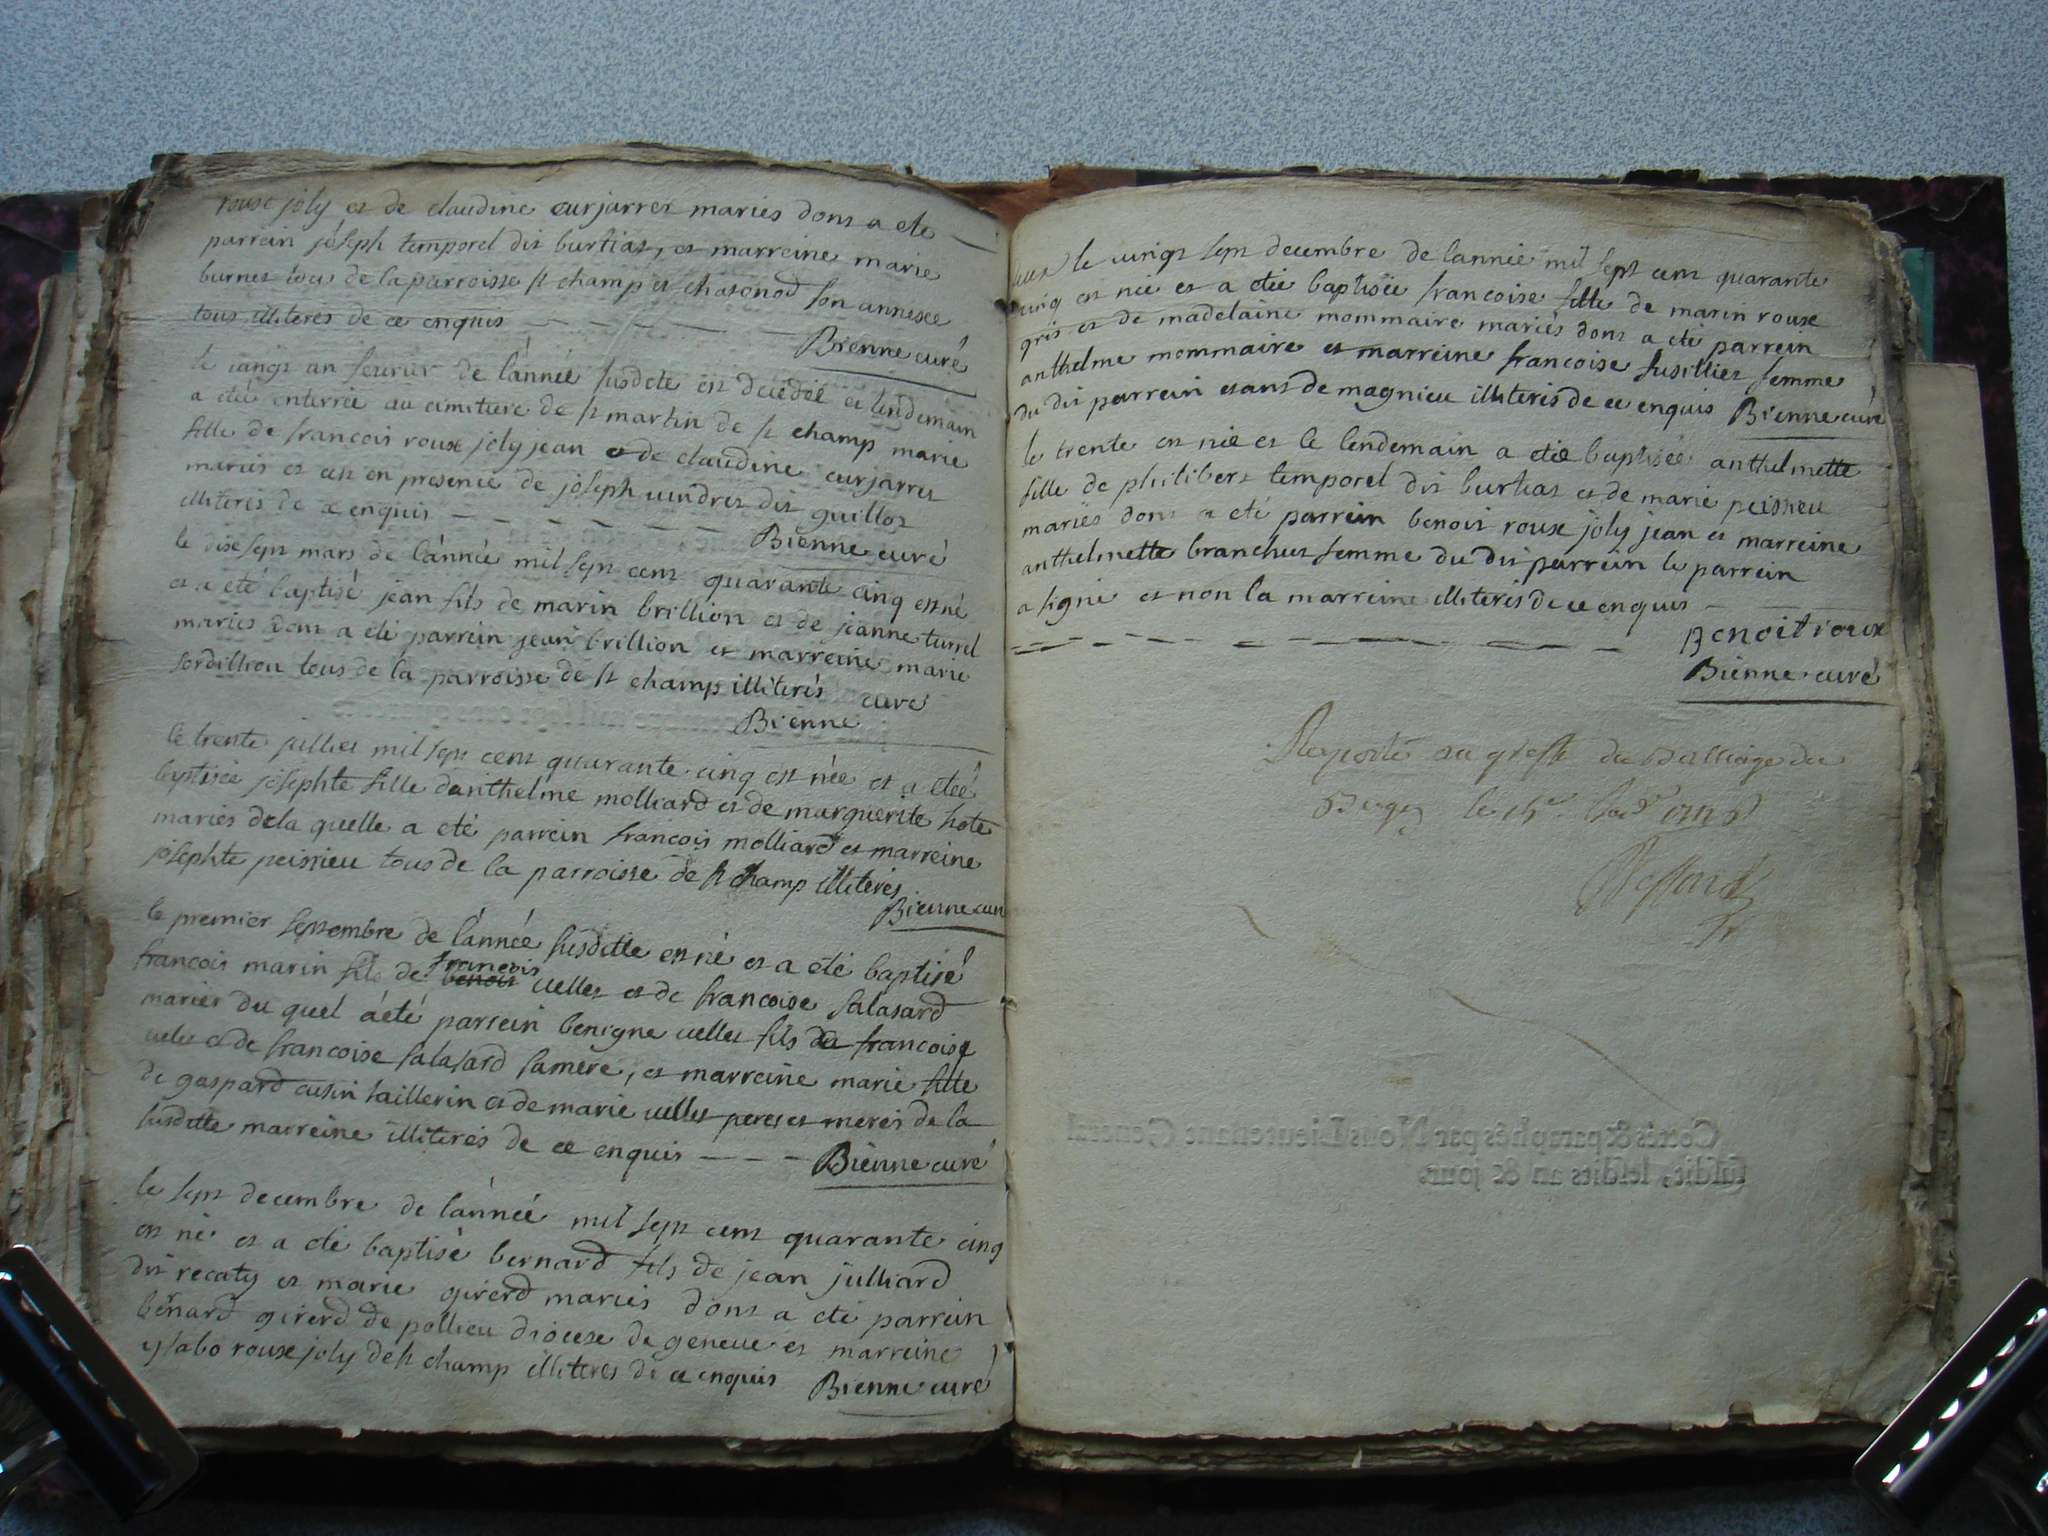 roux joly et de claudine curjarret mariés dont a eté
parrein joseph temporel dit burtias, et marreine marie
burnet tous de la parroisse st champ et chatonod son annexe
tous illiterés de ce enquis
Bienne curé
le vingt un fevrier de l'année susdete est decédée et lendemain
a eté enterrée au cimitiere de st martin de st champ marie
fille de francois roux joly jean et de claudine curjarret
mariés et cest en presence de joseph uindret dit guillot
illiterés de ce enquis
Bienne curé
le dixsept mars de l'année mil sept cent quarante cinq est né
et a eté baptisé jean fils de marin brillion et de jeanne turrel
mariés dont a eté parrein jean brillion et marreine marie
sordillion tous de la parroisse de st champ illiterés
Bienne curé
le trente juillet mil sept cent quarante cinq est née et a eteé
baptisée josephte fille danthelme molliard et de marguerite hote
mariés dela quelle a eté parrein francois molliard et marreine
josephte peissieu tous de la parroisse de st champ illiterés
Bienne curé
le premier septembre de l'année susditte est né et a eté baptisé
francois marin fils de benoit francois uellet et de francoise salasard
mariés du quel a eté parrein benigne uellet fils de francoise
uellet et de francoise salasard sa mere, et marreine marie fille
de gaspard cusin taillerin et de marie uellet peres et meres de la
susditte marreine illiterés de ce enquis
Bienne curé
le sept decembre de l'année mil sept cent quarante cinq
est né et a eté baptisé bernard fils de jean julliard
dit recaty et marie girerd mariés dont a eté parrein
bernard girerd de pollieu diocese de geneue et marreine
ysabo roux joly de st champ illiterés de ce enquis
Bienne curé
le uingt sept decembre de l'année mil sept cent quarante
cinq est née et a etée baptisée francoise fille de marin roux
gris et de madelaine mommaire mariés dont a eté parrein
anthelme mommaire et marreine francoise fusillet femme
du dit parrein etant de magnieu illiterés de ce enquis Bienne curé
le trente est née et le lendemain a eteé baptisée anthelmette
fille de philibert temporel dit burtiat et de marie peissieu
mariés dont a eté parrein benoit roux joly jean et marreine
anthelmette branchut femme du dit parrein le parrein
a signé et non la marreine illiterés de ce enquis
Benoit roux
Bienne curé
Reporté au greffe du Bailliage du
Bugey le
Cottés & paraphés par Nous Lieutenant General
susdit, lesdits an & jour.